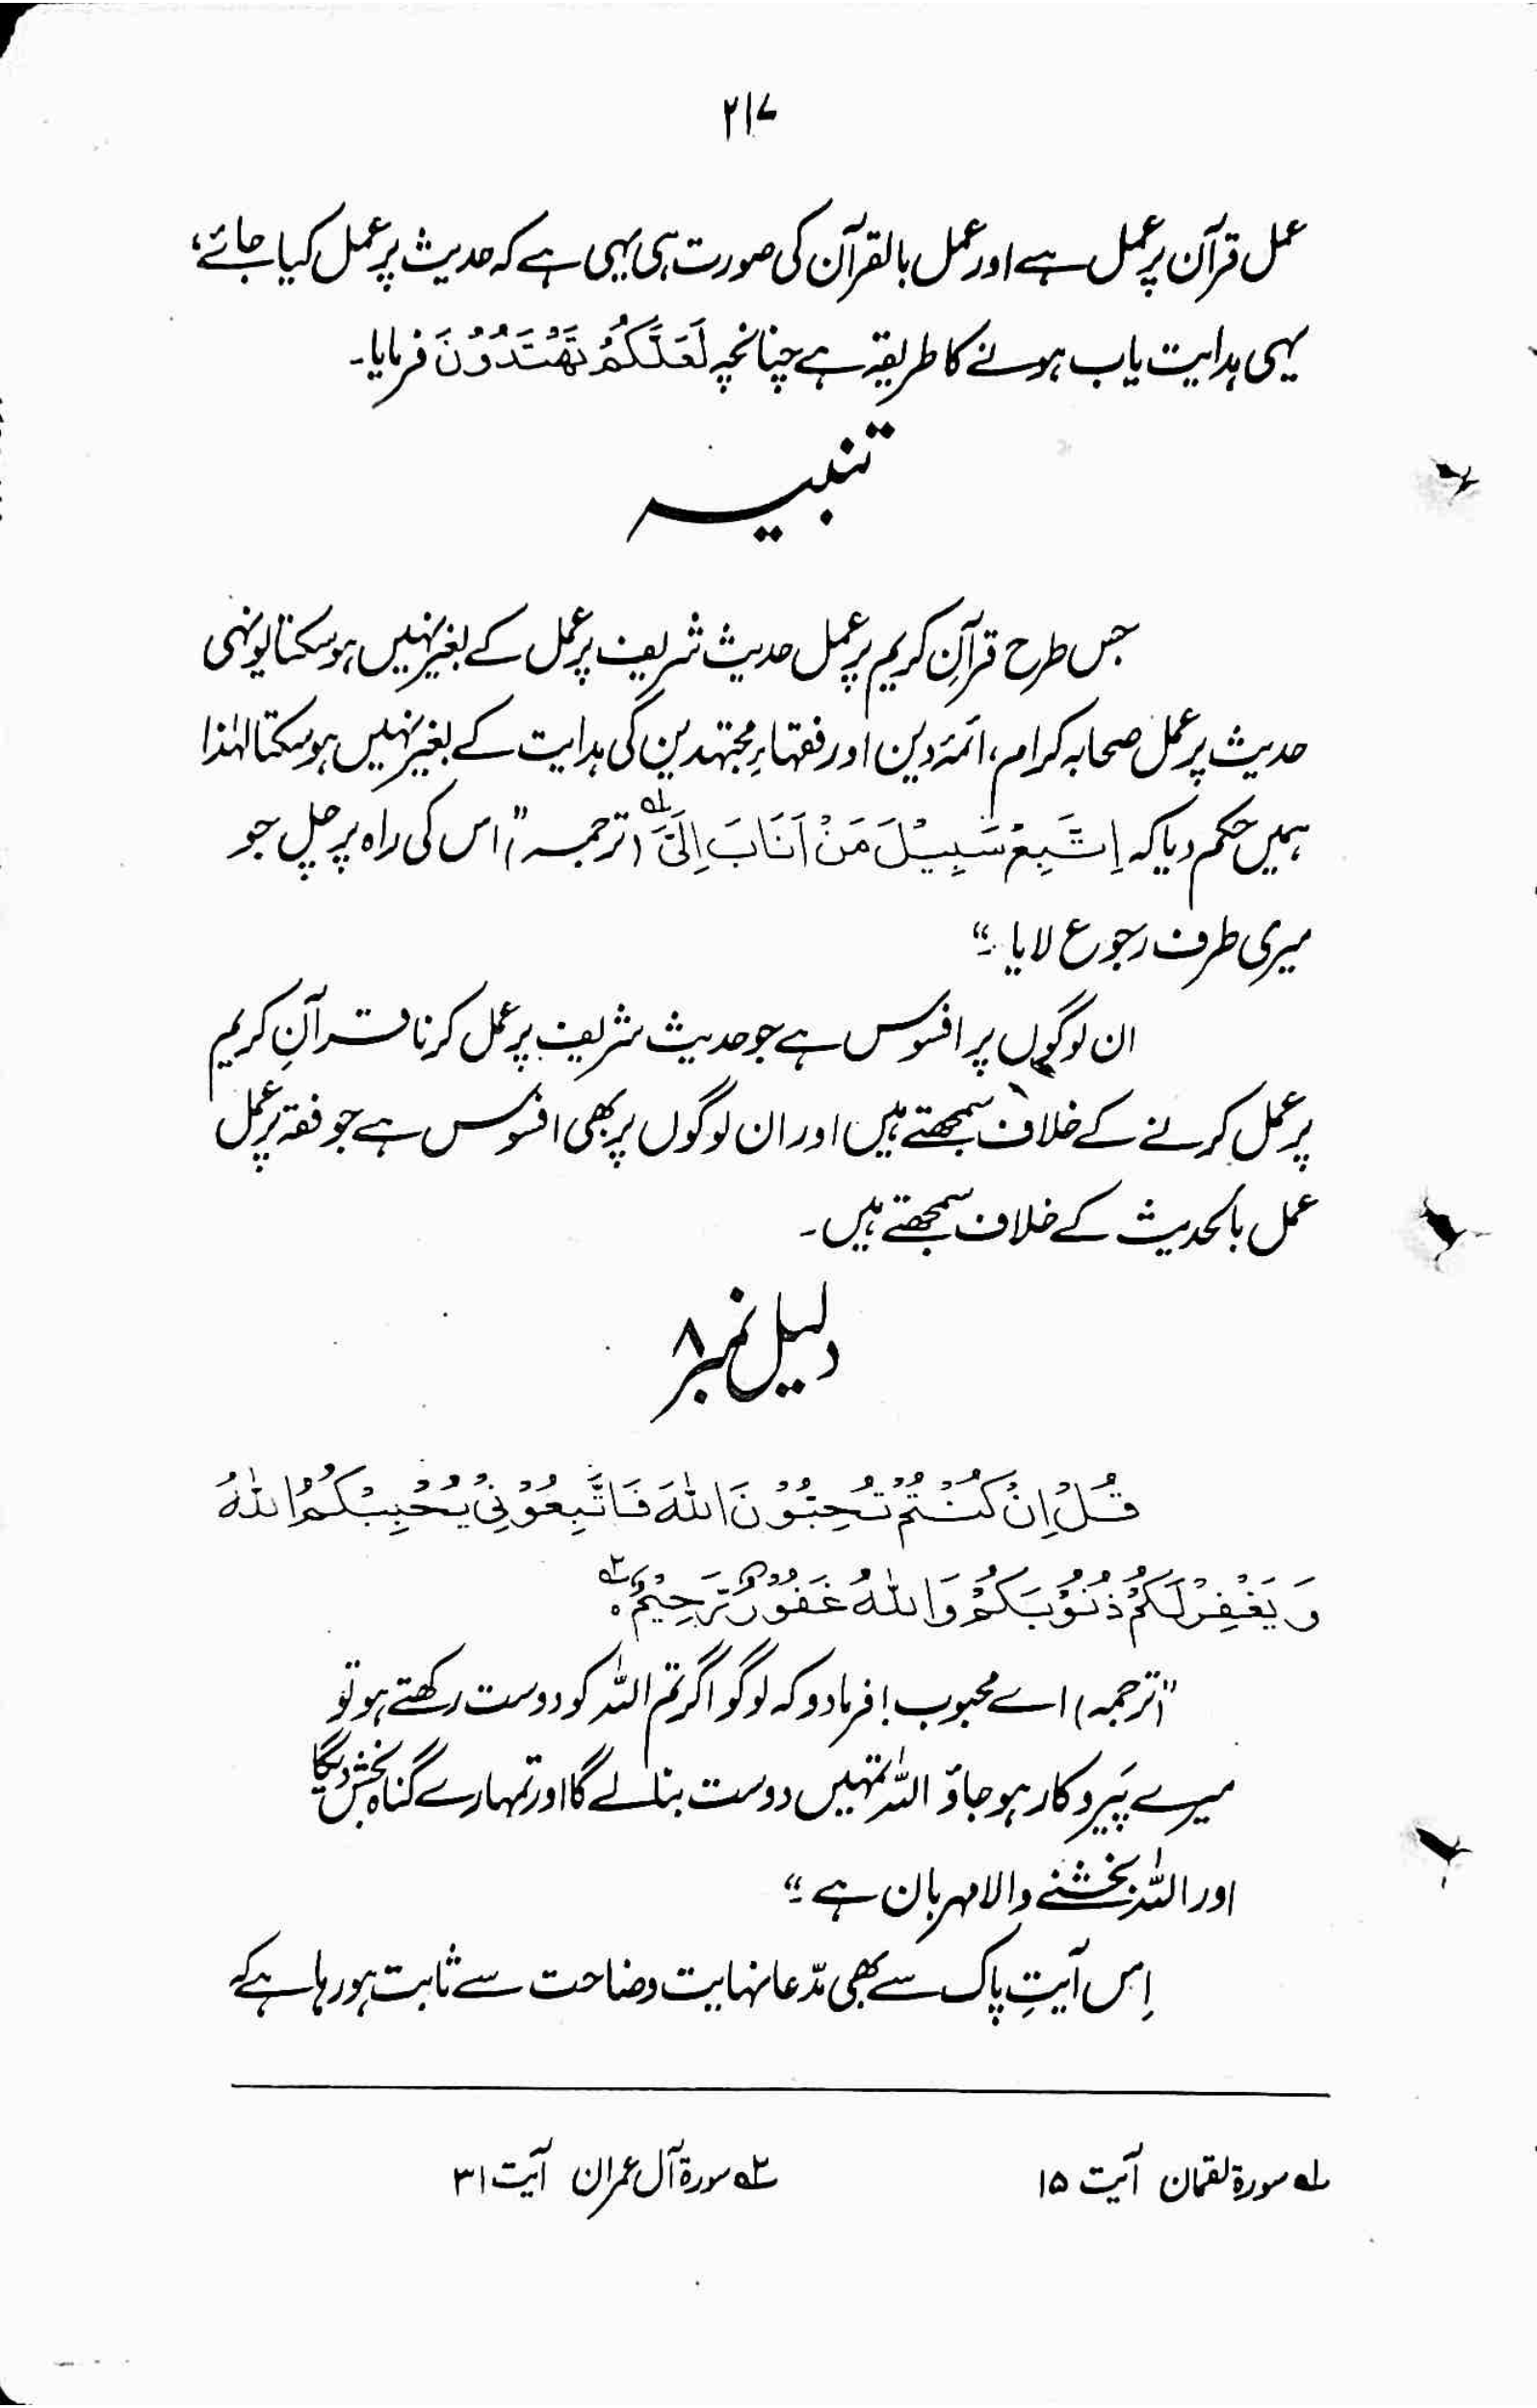 ۲۱۷
عمل قرآن پر عمل ہے اور عمل بالقرآن کی صورت ہی یہی ہے کہ حدیث پر عمل کیا جائے،
یہی ہدایت یاب ہونے کا طریقہ ہے چنانچہ لَعَلَّكُمْ تَهْتَدُوْنَ فرمایا۔
تنبیہ
جس طرح قرآنِ کریم پر عمل حدیث شریف پر عمل کے بغیر نہیں ہو سکتا یونہی
حدیث پر عمل صحابہ کرام، ائمہ دین اور فقہاءِ مجتہدین کی ہدایت کے بغیر نہیں ہو سکتا لہٰذا
ہمیں حکم دیا کہ اِتَّبِعْ سَبِيْلَ مَنْ اَنَابَ اِلَيَّ ۱ (ترجمہ) "اس کی راہ پر چل جو
میری طرف رجوع لایا۔"
ان لوگوں پر افسوس ہے جو حدیث شریف پر عمل کرنا قرآنِ کریم
پر عمل کرنے کے خلاف سمجھتے ہیں اور ان لوگوں پر بھی افسوس ہے جو فقہ پر عمل
عمل بالحدیث کے خلاف سمجھتے ہیں۔
دلیل نمبر ۸
قُلْ اِنْ كُنْتُمْ تُحِبُّوْنَ اللّٰهَ فَاتَّبِعُوْنِيْ يُحْبِبْكُمُ اللّٰهُ
وَيَغْفِرْ لَكُمْ ذُنُوْبَكُمْ وَاللّٰهُ غَفُوْرٌ رَّحِيْمٌ ۲
"(ترجمہ) اے محبوب! فرما دو کہ لوگو اگر تم اللہ کو دوست رکھتے ہو تو
میرے پَیرو کار ہو جاؤ اللہ تمہیں دوست بنا لے گا اور تمہارے گناہ بخش دیگا
اور اللہ بخشنے والا مہربان ہے۔"
اِس آیتِ پاک سے بھی مدّعا نہایت وضاحت سے ثابت ہو رہا ہے کہ
۱ سورۃ لقمان آیت ۱۵
۲ سورۃ آل عمران آیت ۳۱